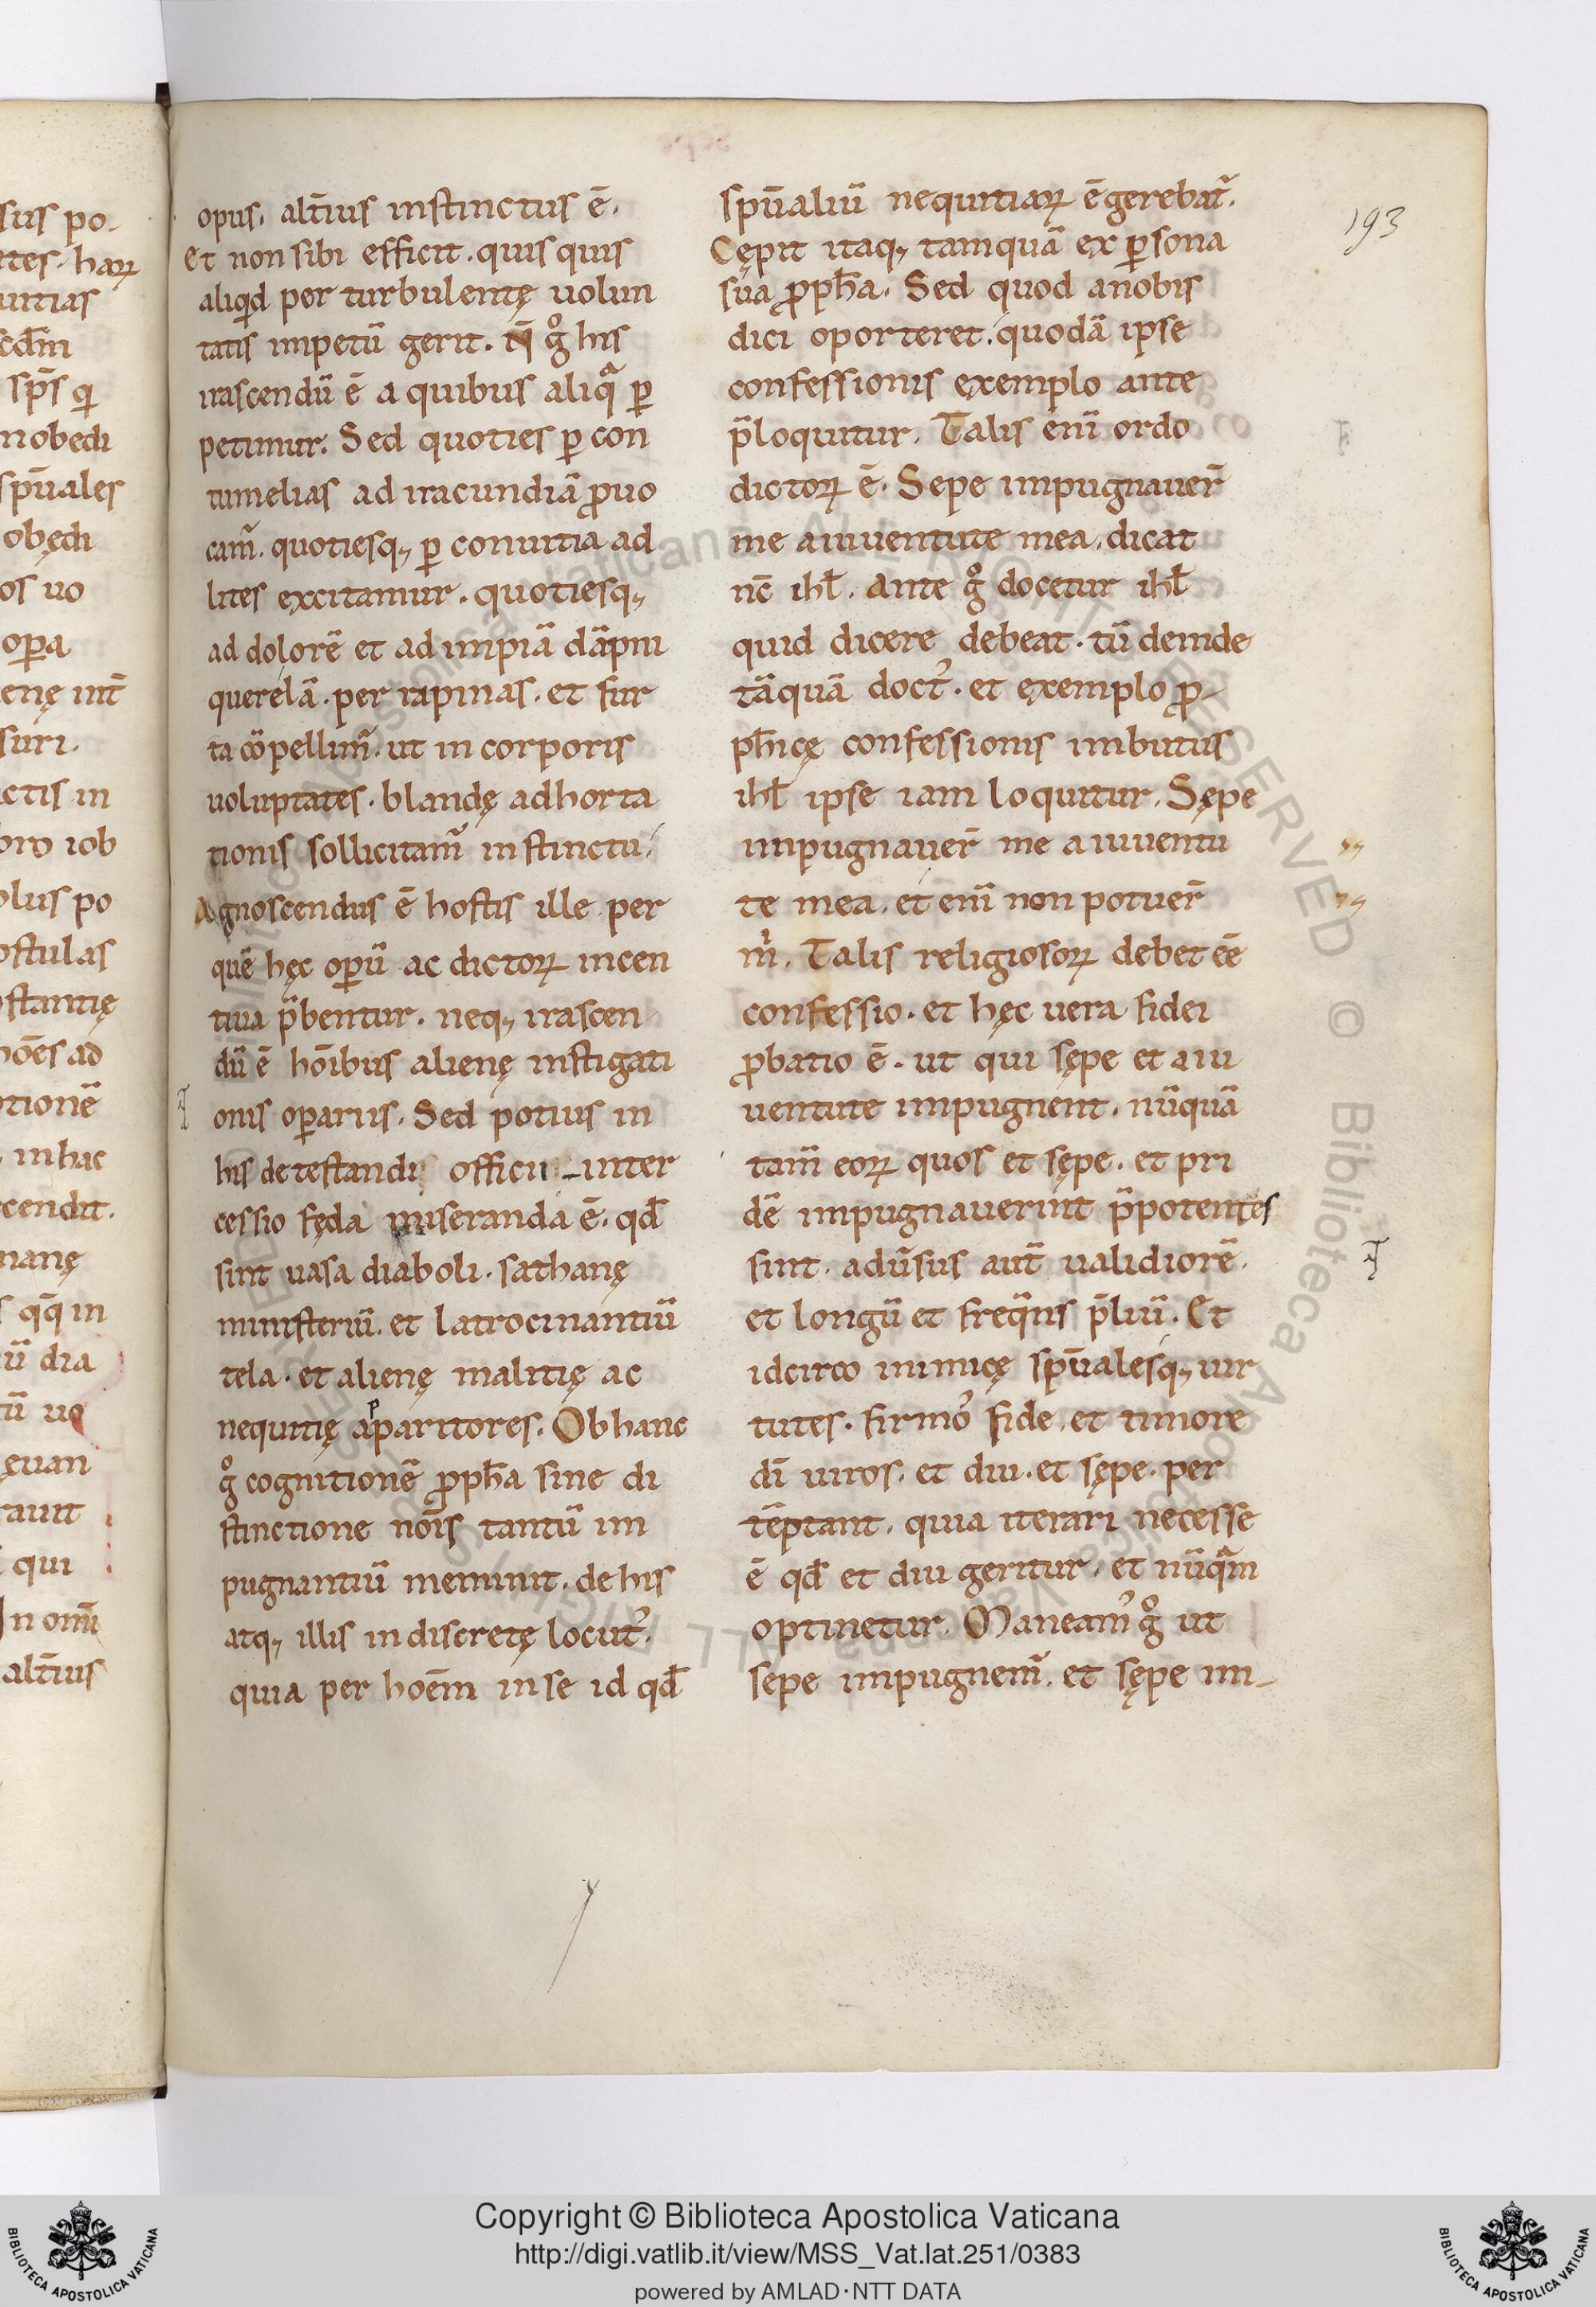 opus. altīus instinctus ē.
Et non sibi efficit. quis quis
aliqd per turbulentę uolun
tatis impetū gerit. Ñ g̊ his
irascendū ē a quibus aliqᷓ ꝑ
petimur. Sed quoties ꝑ con
tumelias ad iracundiā ꝓuo
cam̃. quotiesq; ꝑ conuitia ad
lites excitamur. quotiesq;
ad dolorē et ad impiā dāpni
querelā. per rapinas. et fur
ta cōpellim̃. ut in corporis
uoluptates. blandę adhorta
tionis sollicitam̃ instinctu.
Agnoscendus ē hostis ille per
quē hęc oꝑū ac dictoꝝ incen
tiua p̄bentur. neq; irascen
dū ē hoībus alienę instigati
onis oꝑariis. Sed potius in
his detestandi officii inter
cessio fęda miseranda ē. qđ
sint uasa diaboli. sathanę
ministeriū. et latrocinantiū
tela. et alienę malitię ac
nequitię apparitores. Ob hanc
g̊ cognitionē ꝓpħa sine di
stinctione noīs tantū im
pugnantiū meminit. de his
atq; illis indiscretę locut᾽.
quia per hoēm in se id qđ
spūaliū nequitiaꝝ ē gerebat̃.
Cępit itaq; tamquā ex ꝑsona
sua ꝓpħa. Sed quod anobis
dici oporteret. quodā ipse
confessionis exemplo ante
p̄loquitur. Talis enī ordo
dictoꝝ ē. Sepe impugnauer̄
me a iuuentute mea. dicat
nc̄ ihł. Ante g̊ docetur ihł
quid dicere debeat. tū deinde
tāquā doct᾽. et exemplo ꝓ-
pħicę confessionis imbutus
ihł ipse iam loquitur. Sępe
impugnauer̄ me a iuuentu
te mea. et enī non potuer̄
m̓. Talis religiosoꝝ debet eē
confessio. et hęc uera fidei
ꝓbatio ē. ut qui sępe et a iu
uentute impugnent. nūquā
tam̄ eoꝝ quos et sępe. et pri
dē impugnauerint p̄potentes
sint. adūsus aut̄ ualidiorē.
et longū et freqns p̄liū. Et
idcirco inimicę spūalesq; uir
tutes. firmo᾽ fide et timore
dī uiros. et diu. et sępe. per
tēptant. quia iterari necesse
ē qđ et diu geritur. et nūqᷓm
optinetur. Maneam᾽ g̊ ut
sepe impugnem̃. et sępe im-
193
sus po-
ites. haꝝ
uitias
scdm̄
sps̄ q
n obedi
spūales
obędi
os uo
oꝑa
enę int̄
suri.
ctis in
bro iob
olus po
ostulas
stantię
hoēs ad
tionē
in hac
cendit.
manę
qq̄ in
ū dia
tū uo
ęuan
rauit
qui
In omī
altīus
Copyright © Biblioteca Apostolica Vaticana
http://digi.vatlib.it/view/MSS_Vat.lat.251/0383
powered by AMLAD·NTT DATA
BIBLIOTECA APOSTOLICA VATICANA
BIBLIOTECA APOSTOLICA VATICANA